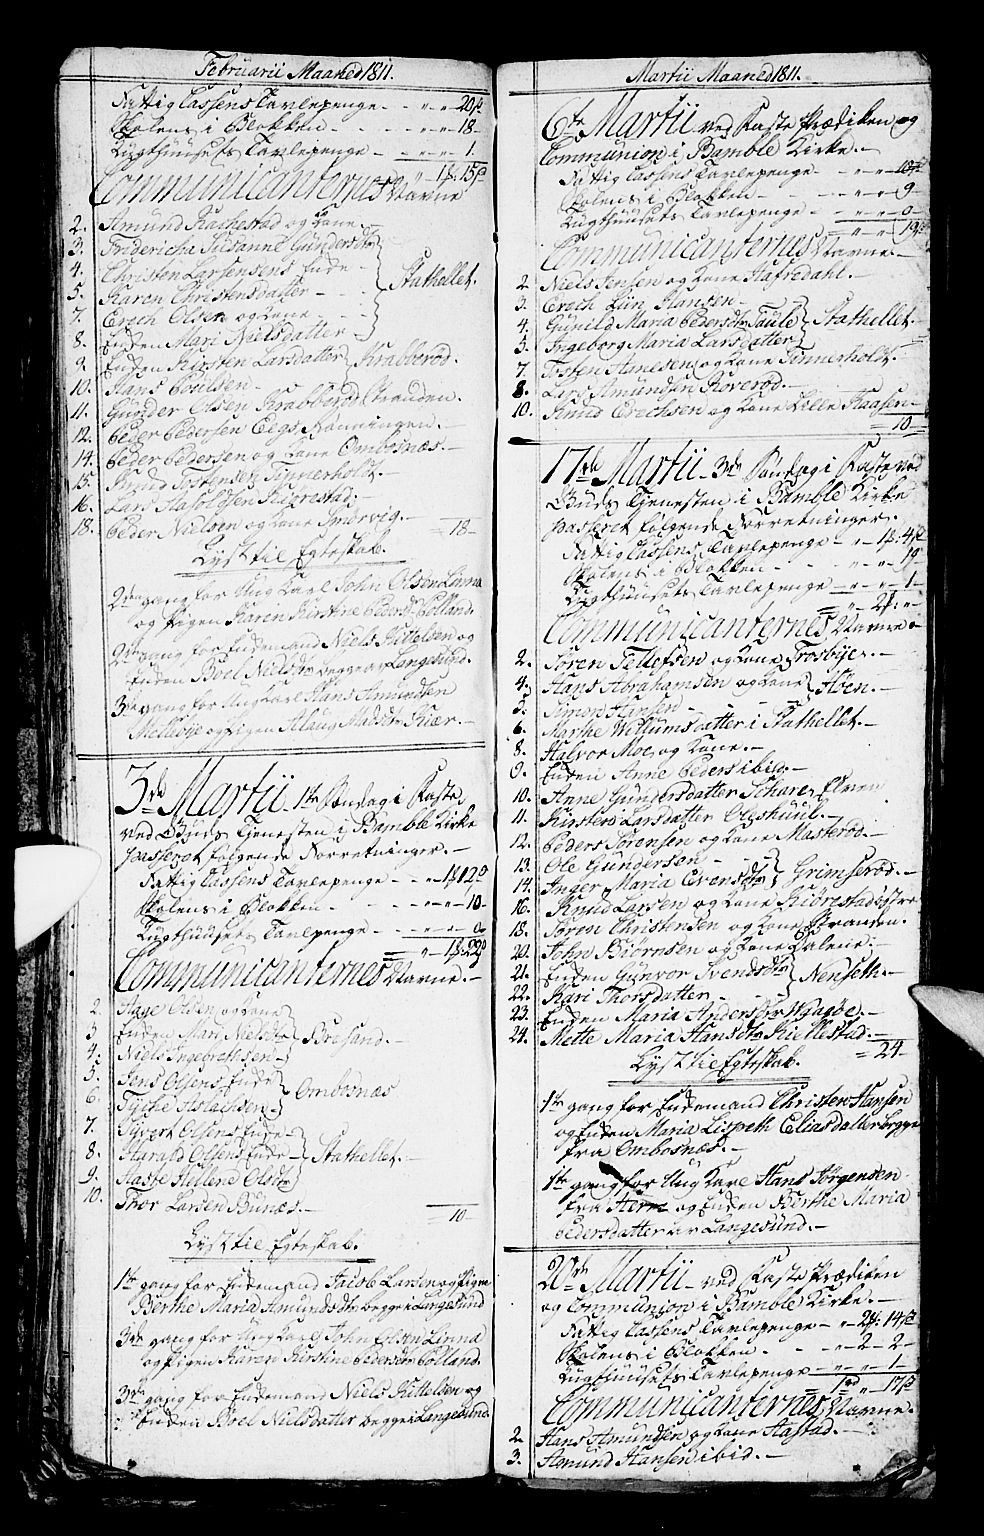 Februarii Maaned 1811.
Fattig Cassens Tavlepenge - - " " 20 ß
Skolens i Blokken - - - " " 18 -
Tugthuusets Tavlepenge - " " 1.
" 1 : 15 ß
Communicanternes Navne
2. Amund Rachestad og Kone
3. Fridericha Susanne Gundersdtr
4. Christen Larsensens Enke -
5. Karen Christensdatter -
Stathellet.
7. Erech Olsen og Kone -
8. Enken Mari Nielsdatter
9. Enken Kirsten Larsdatter Krabberød.
10. Hans Poulsen -
11. Gunder Olsen Krabberød Stranden.
12. Peder Pedersen Eegs Rønningen. -
14. Peder Pedersen og Kone Ombosnæs. -
15. Knud Tostensen Tinnerholt. -
16. Lars Hasoldsen Kiørestad. -
18. Peder Nielsen og Kone Smørvig. - 18 -
Lyst til Egteskab.
2den gang for Ung Karl John Olsen Linna
og Pigen Karen Kirstine Pedersdtr Tolland.
2den gang for Enkemand Niels Kittelsen og
Enken Boel Nielsdtr begge af Langesund.
3die gang for Ung Karl Hans Amundsen
Melleøye og Pigen Aslaug Madsdtr Kiær. -
3de Martii 1te Søndag i Faste
ved Guds Tjenesten i Bamble Kirke
passeret følgende Forretninger. -
Fattig Cassens Tavlepenge - - " 1 12 ß
Skolens i Blokken - - - " " 10 -
Tugthuusets Tavlepenge - " " 0
" 1 : 22 ß
Communicanternes Navne. -
2. Aage Olsen og Kone
3. Enken Mari Nielsdtr
Bresand. -
4. Niels Ingebrethsen -
5. Jens Olsens Enke
6. Tyche Aslachsen -
Ombosnæs
7. Syvert Olsens Enke -
8. Harald Olsens Enke
Stathellet. -
9. Aasse Hellene Olsdtr
10. Thor Larsen Bunæs. -
10 -
Lyst til Egteskab.
1te gang for Enkemand Jacob Larsen og Pigen
Berthe Maria Amundsdtr begge i Langesund
3de gang for Ung Karl John Olsen Linna
og Pigen Karen Kirstine Pedersdtr Tolland.
3de gang for Enkemand Niels Kittelsen og
Enken Boel Nielsdatter begge i Langesund.
Martii Maaned 1811.
6te Martii ved Faste Prædiken og
Communion i Bamble Kirke. -
Fattig Cassens Tavlepenge - " " 10 ß
Skolens i Blokken - - " " 9
Tugthuusets Tavlepenge - " " 0
" " 19 ß
Communicanternes Navne. -
2. Niels Jensen og Kone Hafredahl. -
3. Erech Jun Hansen -
4. Gunild Maria Pedersdtr Taule
Stathellet. -
5. Ingeborg Maria Larsdatter
7. Tosten Arnesen og Kone Tinnerholt. -
8. Lars Amundsen Roverød. -
10. Knud Erechsen og Kone Lille Kaasen. -
10 -
17de Martii 3de Søndag i Faste ved
Guds Tjenesten i Bamble Kirke
passeret følgende Forretninger. -
Fattig Cassens Tavlepenge - " 1 : 4 ß
Skolens i Blokken - - - " " 19
Tugthuusets Tavlepenge - " " 1 -
" 2 : " -
Communicanternes Navne -
2. Søren Tellefsen og Kone Trosbye. -
4. Hans Abrahamsen og Kone
5. Simon Hansen -
Aaen. -
6. Marthe Willumsdatter i Stathellet. -
8. Halvor Moe og Kone. -
9. Enken Anne Peders ibid. -
10. Anne Gundersdatter Schare Elven
11. Kirsten Larsdatter Oleshuul. -
12. Peders Sørensen og Kone Masterød. -
13. Ole Gundersen -
14. Inger Maria Evensdtr
Grimserød. -
16. Knud Larsen og Kone Kiørestad østre
18. Søren Christensen og Kone Stranden. -
20. John Biørnsen og Kone Dalene. -
21. Enken Gunvor Svendsdtr
22. Kari Thorsdatter -
Nenseth. -
23. Enken Maria Andersdtr Waaboe. -
24. Mette Maria Hansdtr Kiellestad. -
24 -
Lyst til Egteskab.
1te gang for Enkemand Christen Hansen
og Enken Maria Lispeth Eliasdatter begge
fra Ombosnæs. -
1te gang for Ung Karl Hans Jørgensen
fra Herre og Enken Berthe Maria
Pedersdatter av Langesund. -
20de Martii - ved Faste Prædiken
og Communion i Bamble Kirke. -
Fattig Cassens Tavlepenge - " 2 : 14 ß
Skolens i Blokken. - - " 2 - 2 -
Tugthuusets Tavlepenge - " " 1 -
1 " 17 ß
Communicanternes Navne. -
2. Hans Amundsen og Kone Aastad. -
3. Amund Hansen ibid. -